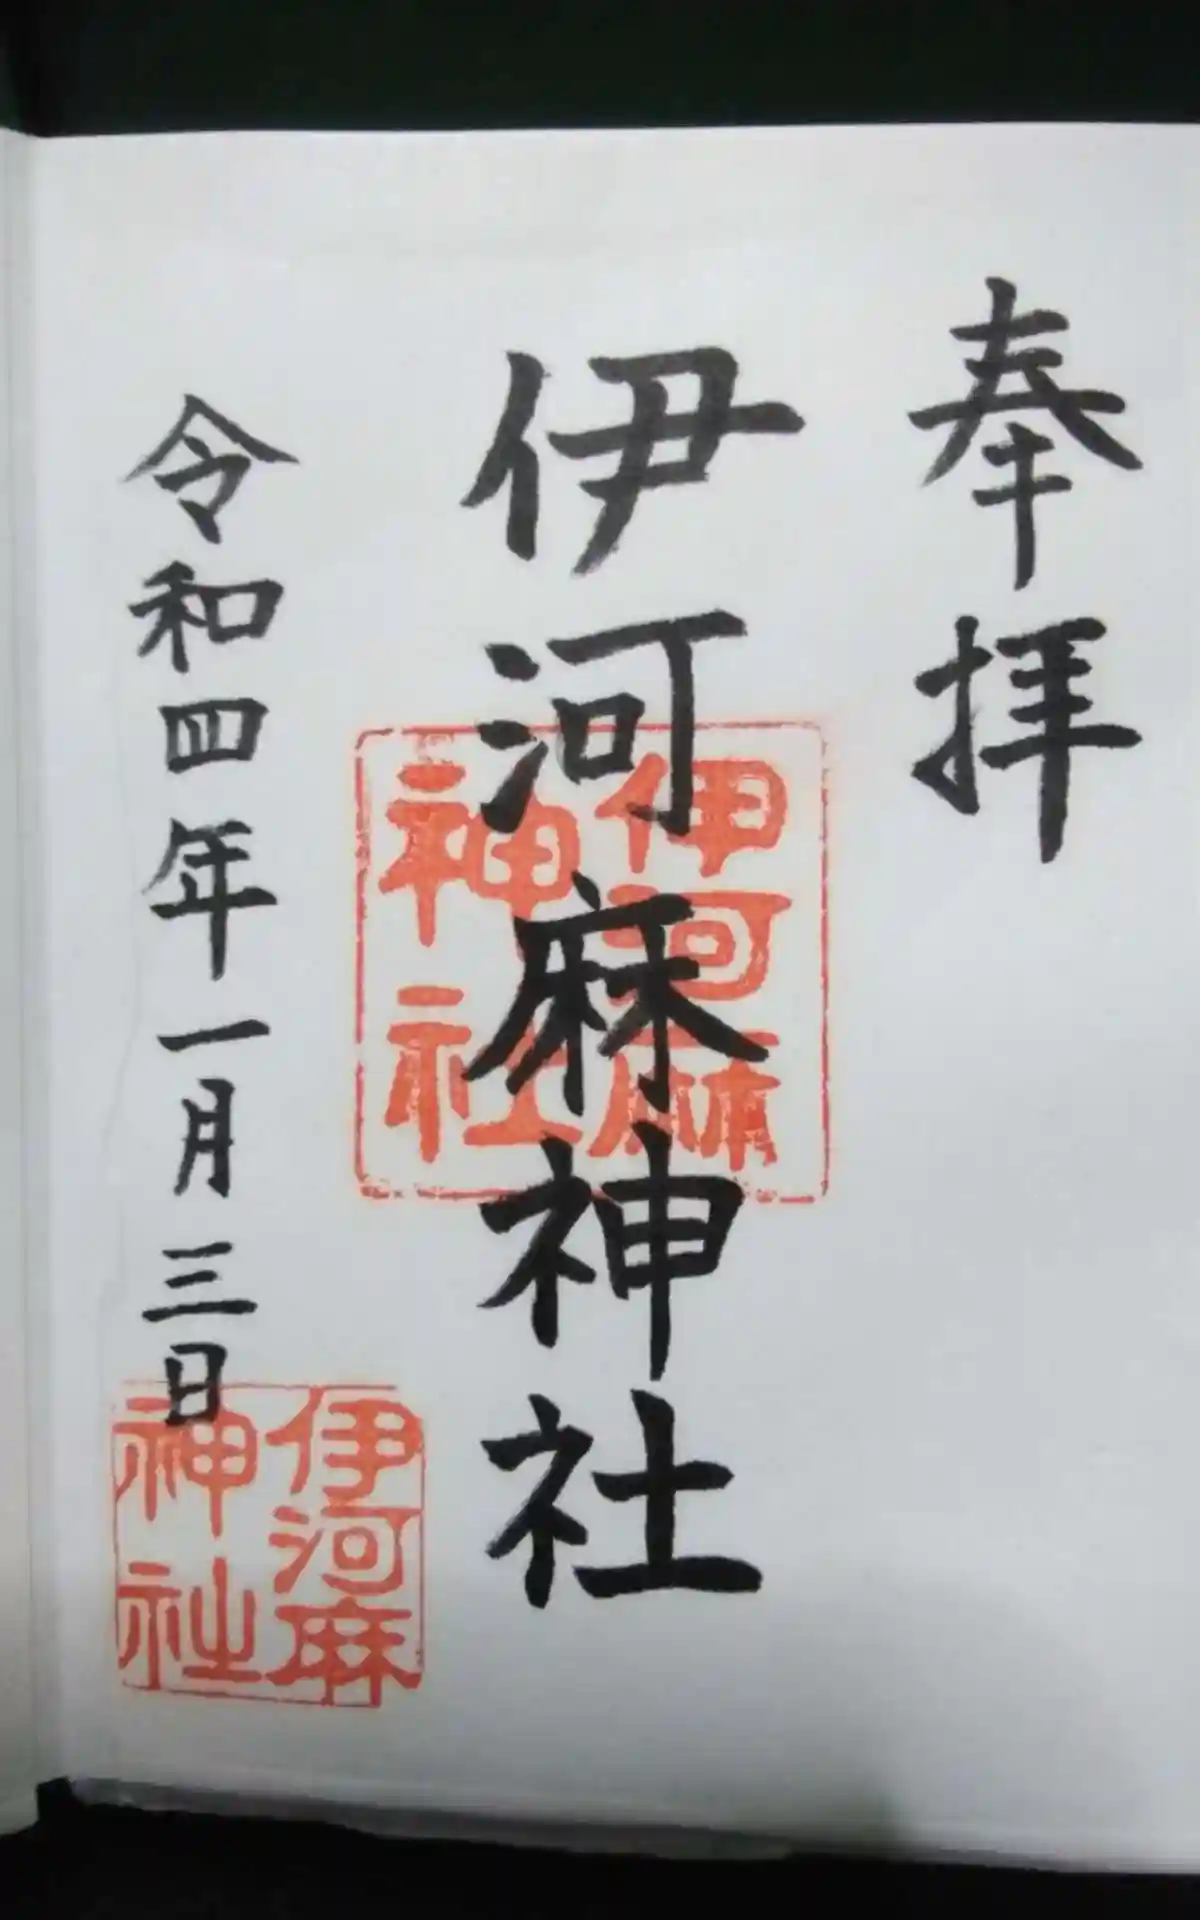 奉拝
伊河麻神社
伊河麻
神社
令和四年一月三日
伊河麻
神社